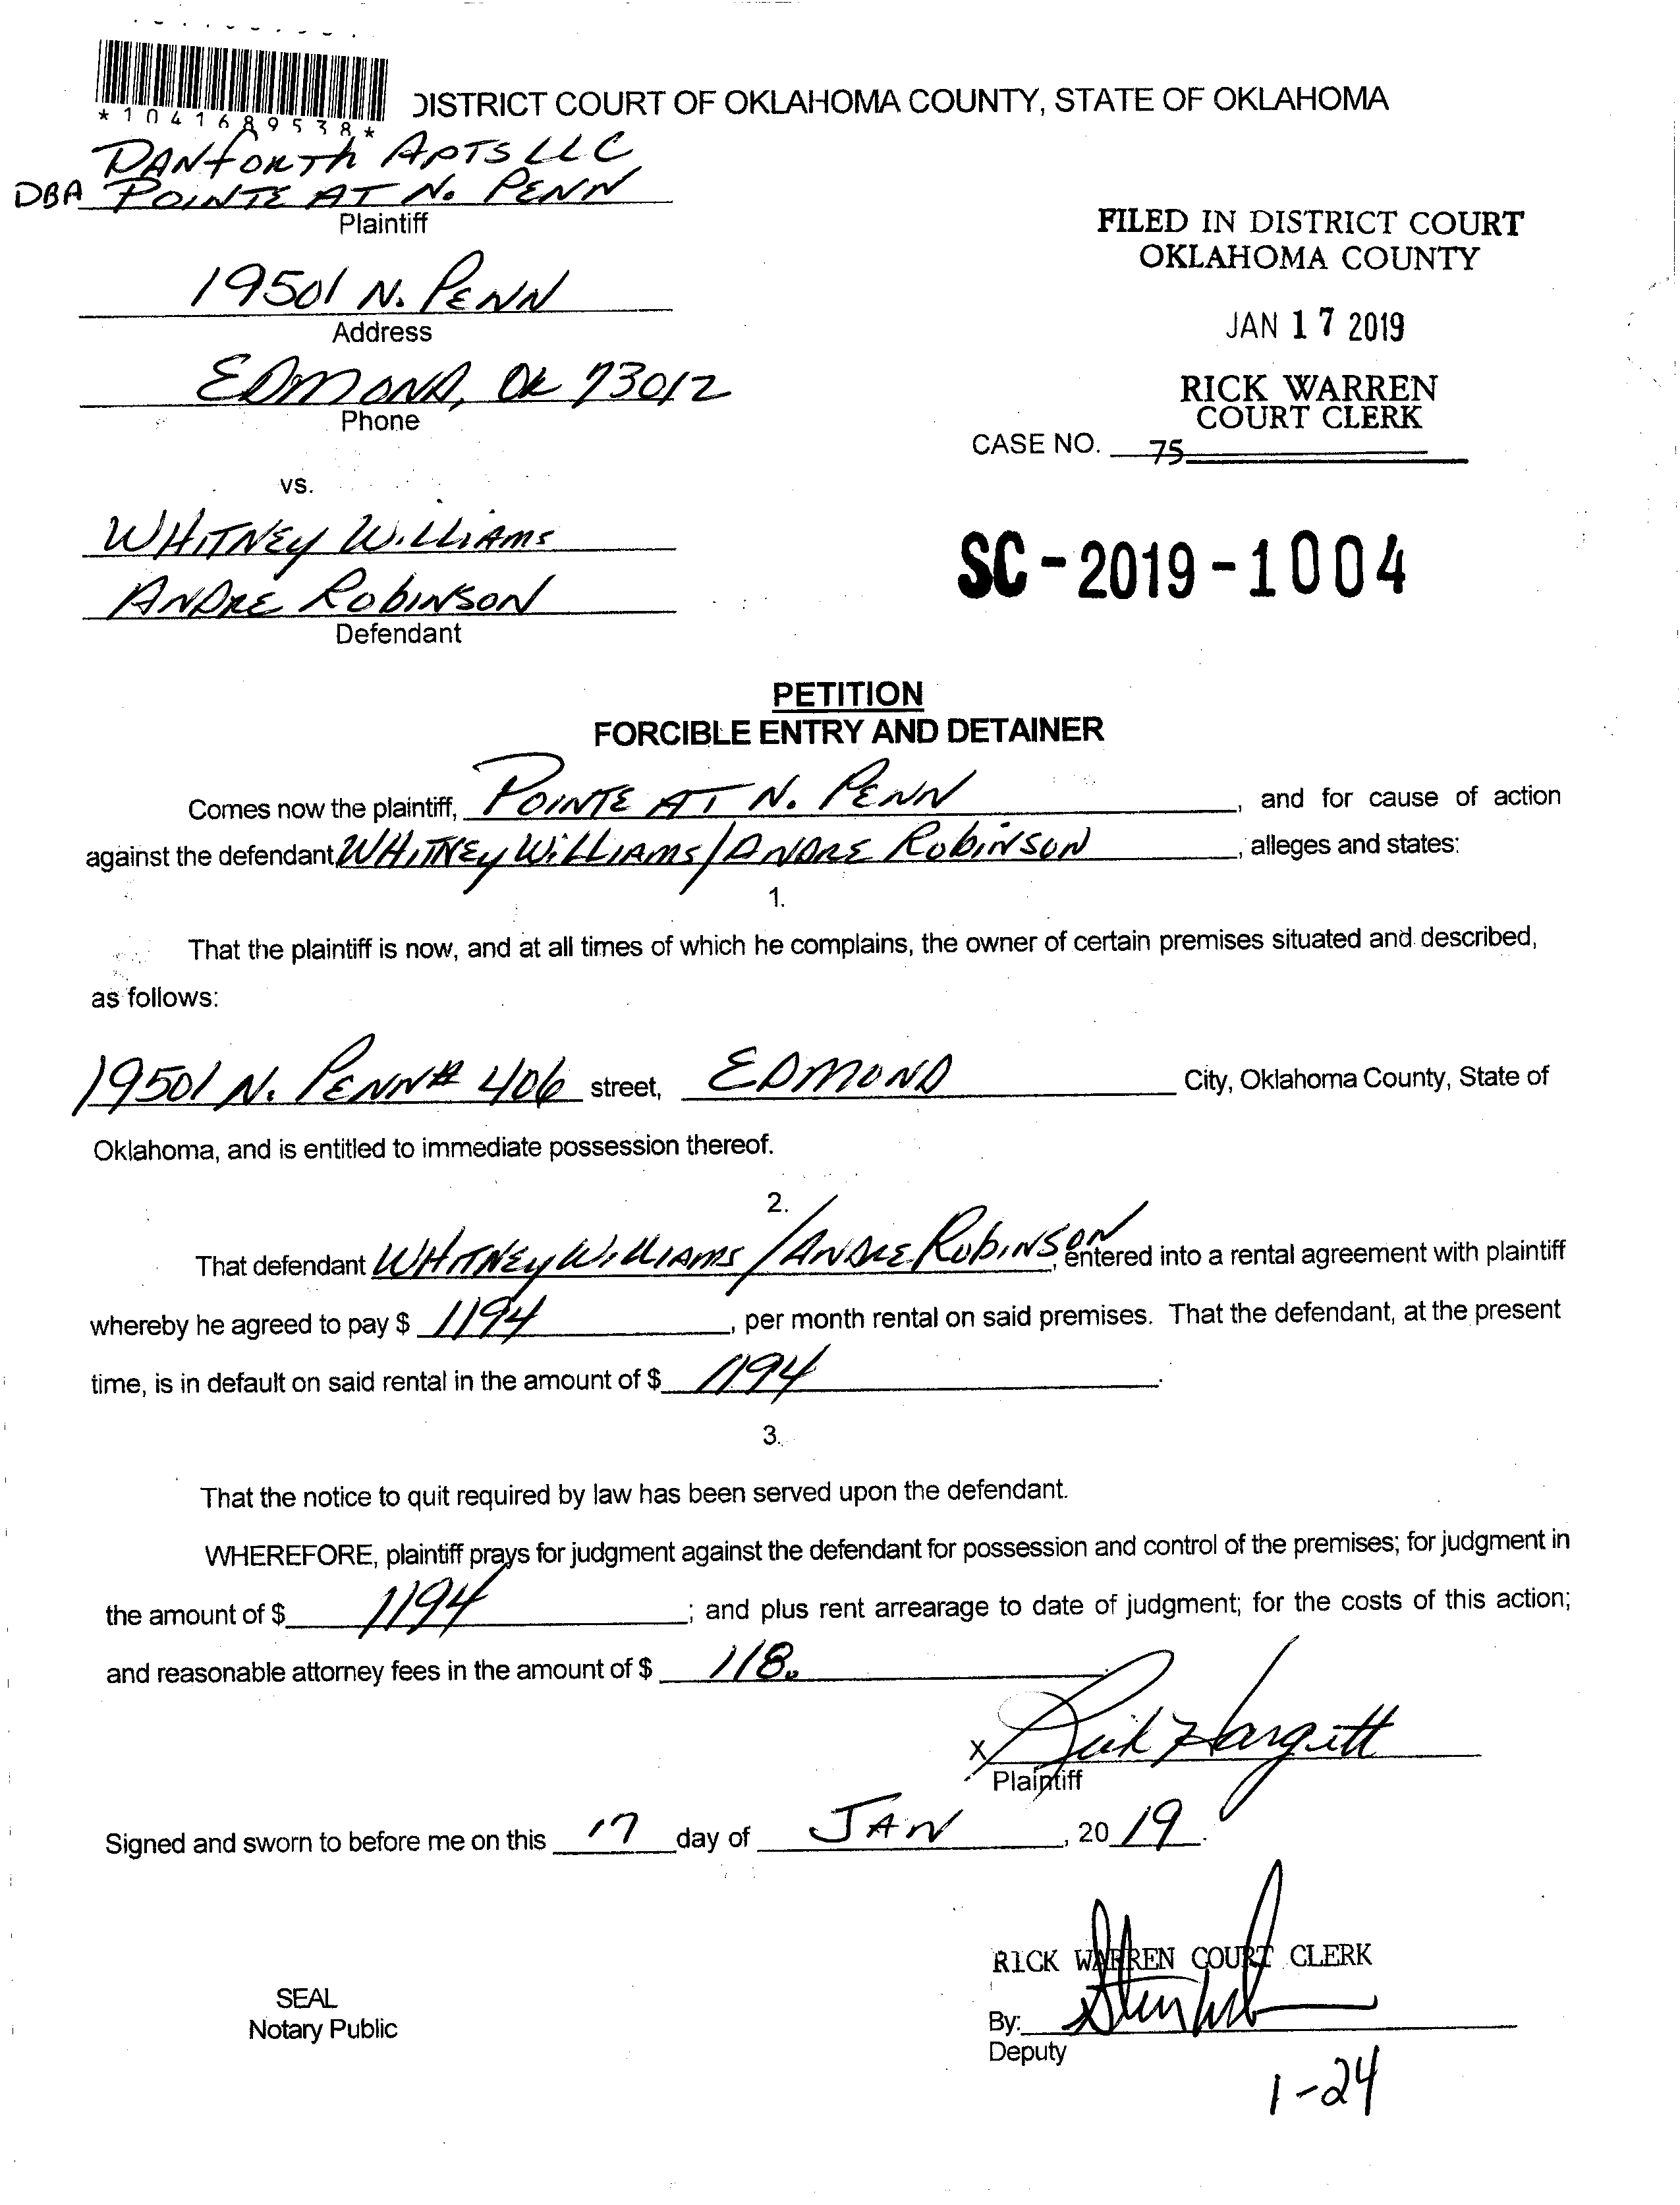 *1041689538*
DISTRICT COURT OF OKLAHOMA COUNTY, STATE OF OKLAHOMA
DANFORTH APTS LLC
DBA POINTE AT N. PENN
Plaintiff
19501 N. PENN
Address
EDMOND, OK 73012
Phone
FILED IN DISTRICT COURT
OKLAHOMA COUNTY
JAN 17 2019
RICK WARREN
COURT CLERK
CASE NO. 75
vs.
WHITNEY WILLIAMS
ANDRE ROBINSON
Defendant
SC-2019-1004
PETITION
FORCIBLE ENTRY AND DETAINER
Comes now the plaintiff, POINTE AT N. PENN, and for cause of action
against the defendant WHITNEY WILLIAMS/ANDRE ROBINSON, alleges and states:
1.
That the plaintiff is now, and at all times of which he complains, the owner of certain premises situated and described,
as follows:
19501 N. PENN # 406 street, EDMOND City, Oklahoma County, State of
Oklahoma, and is entitled to immediate possession thereof.
2.
That defendant WHITNEY WILLIAMS/ANDRE ROBINSON, entered into a rental agreement with plaintiff
whereby he agreed to pay $ 1194, per month rental on said premises. That the defendant, at the present
time, is in default on said rental in the amount of $ 1194.
3.
That the notice to quit required by law has been served upon the defendant.
WHEREFORE, plaintiff prays for judgment against the defendant for possession and control of the premises; for judgment in
the amount of $ 1194; and plus rent arrearage to date of judgment; for the costs of this action;
and reasonable attorney fees in the amount of $ 118.
x Rick Hargett
Plaintiff
Signed and sworn to before me on this 17 day of JAN, 20 19.
RICK WARREN COURT CLERK
SEAL
Notary Public
By:
Deputy
1-24